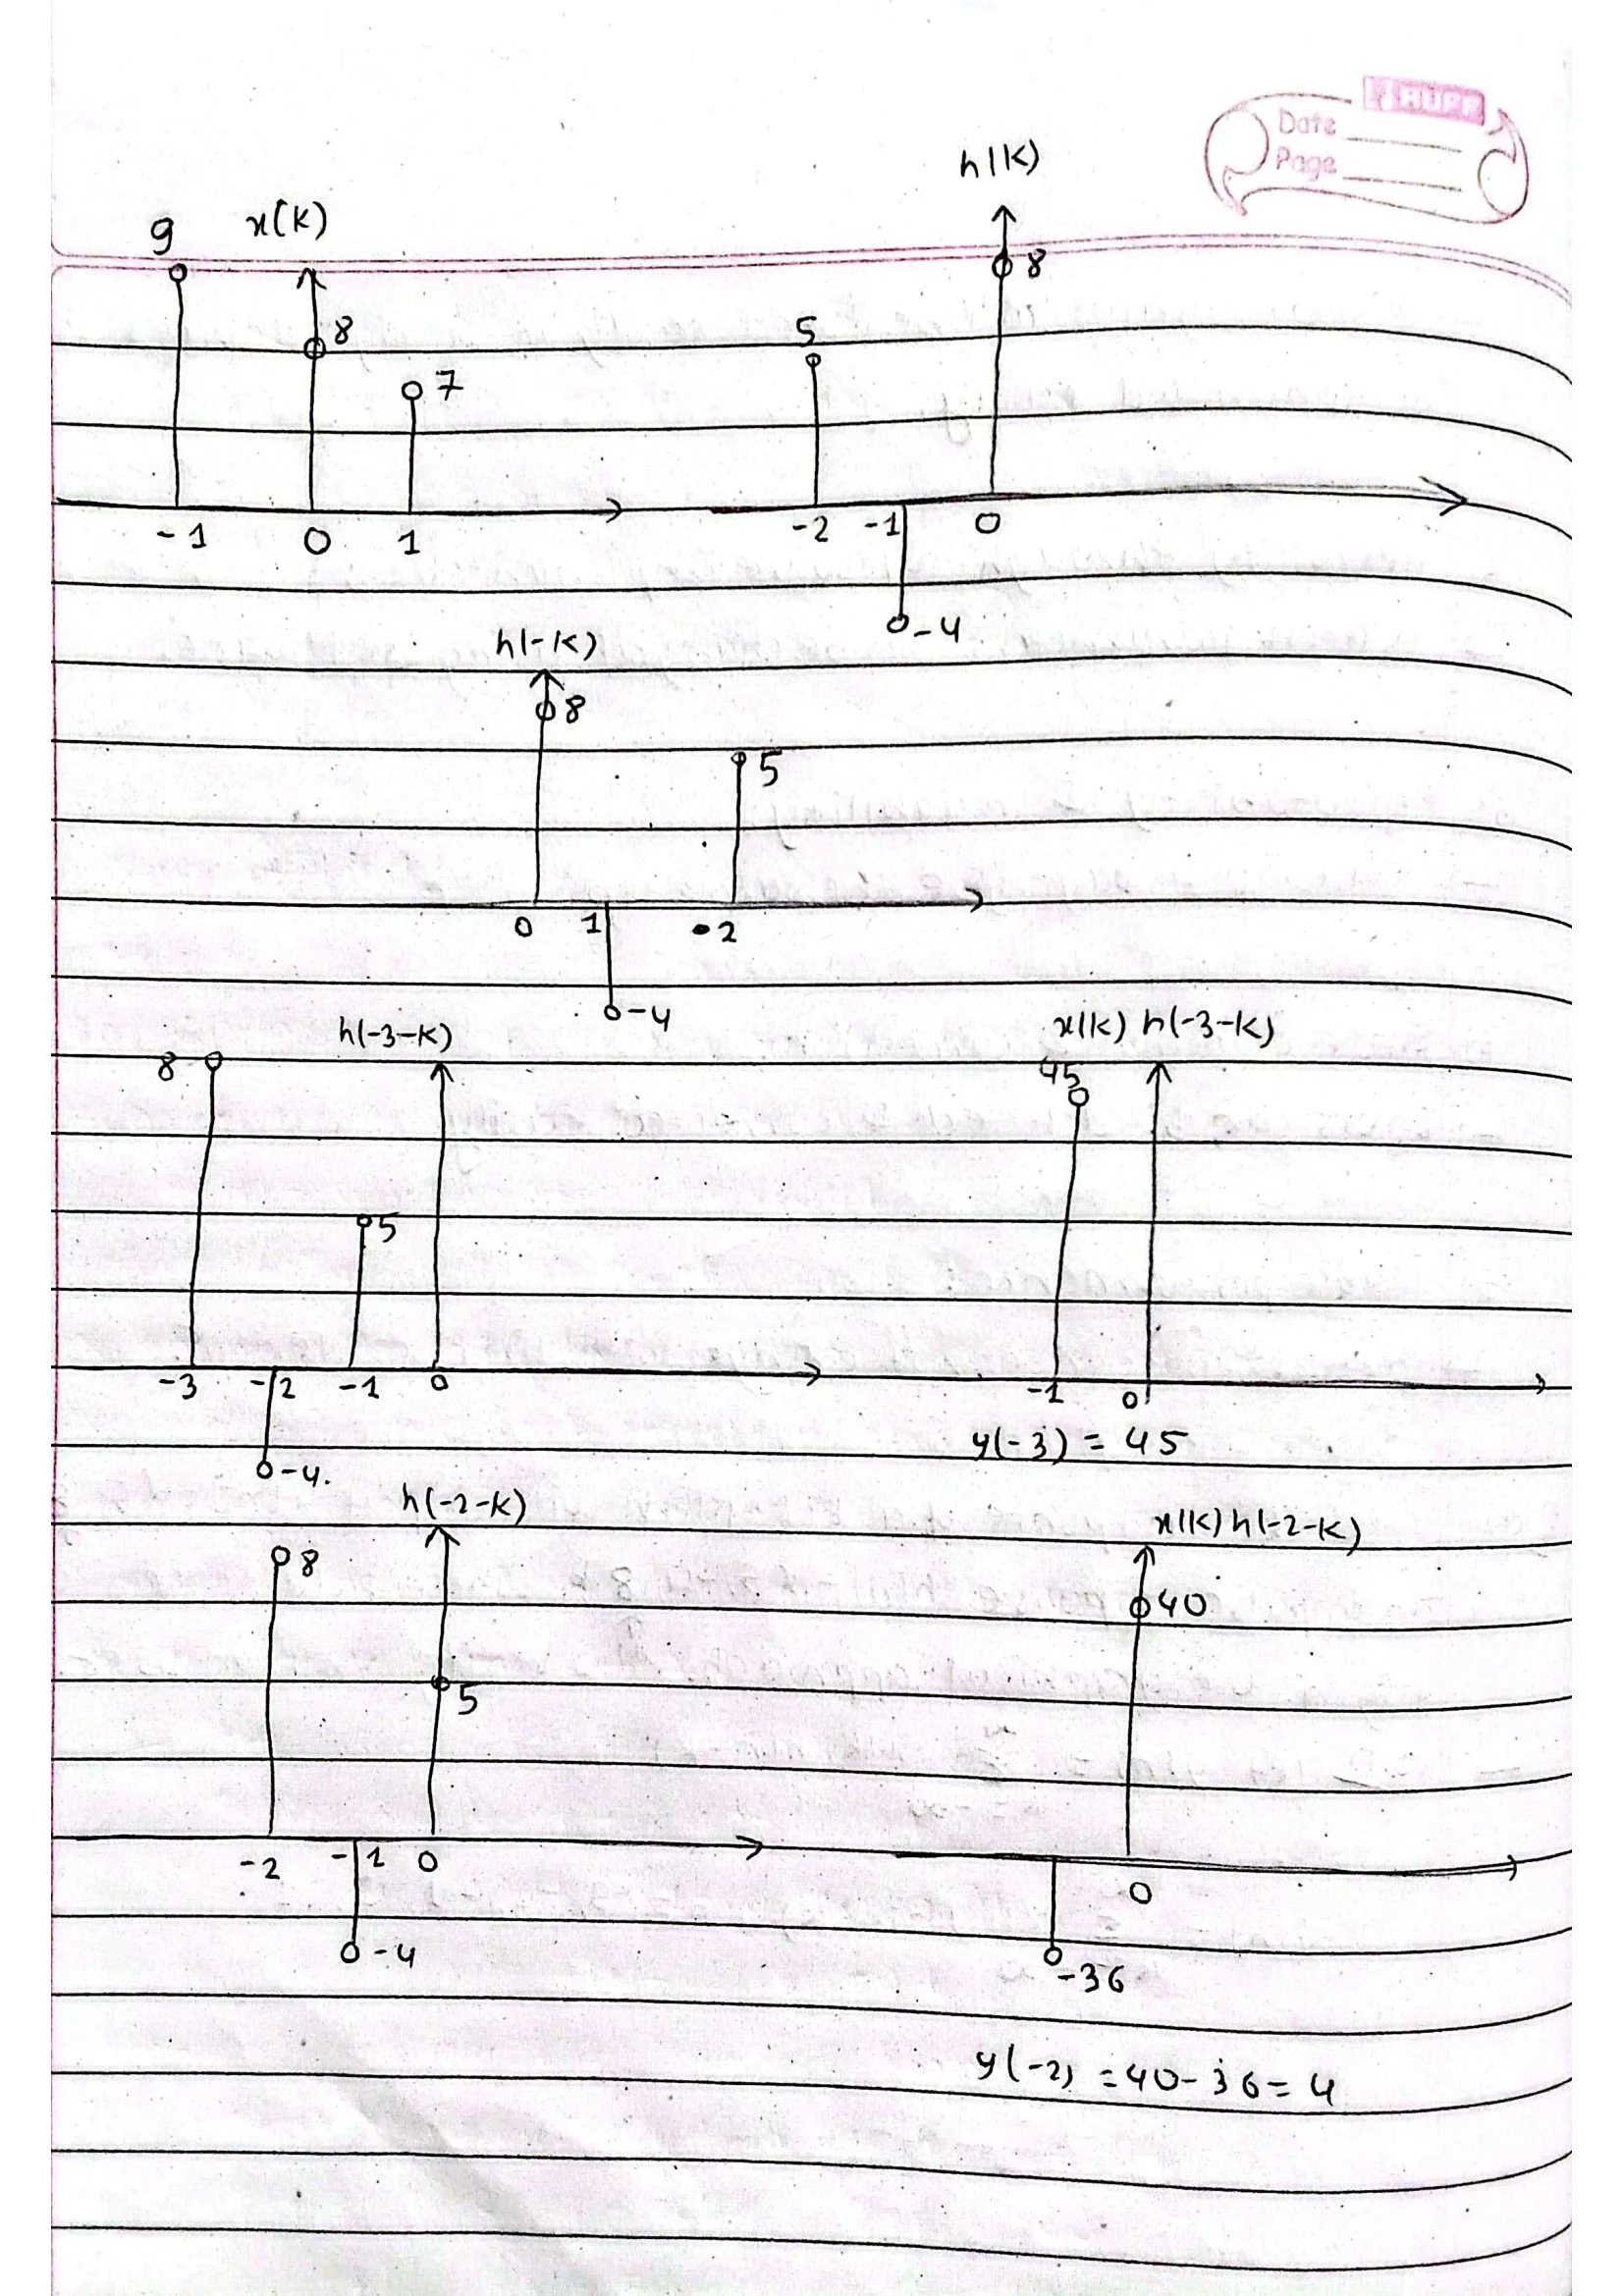 RUPP
Date
Page
h(k)
9 x(k)
8
8
5
7
-1 0 1
-2 -1 0
-4
h(-k)
8
5
0 1 2
-4
h(-3-k)
x(k) h(-3-k)
8
45
5
-3 -2 -1 0
-1 0
y(-3) = 45
-4.
h(-2-k)
x(k) h(-2-k)
8
40
5
-2 -1 0
0
-4
-36
y(-2) = 40-36 = 4